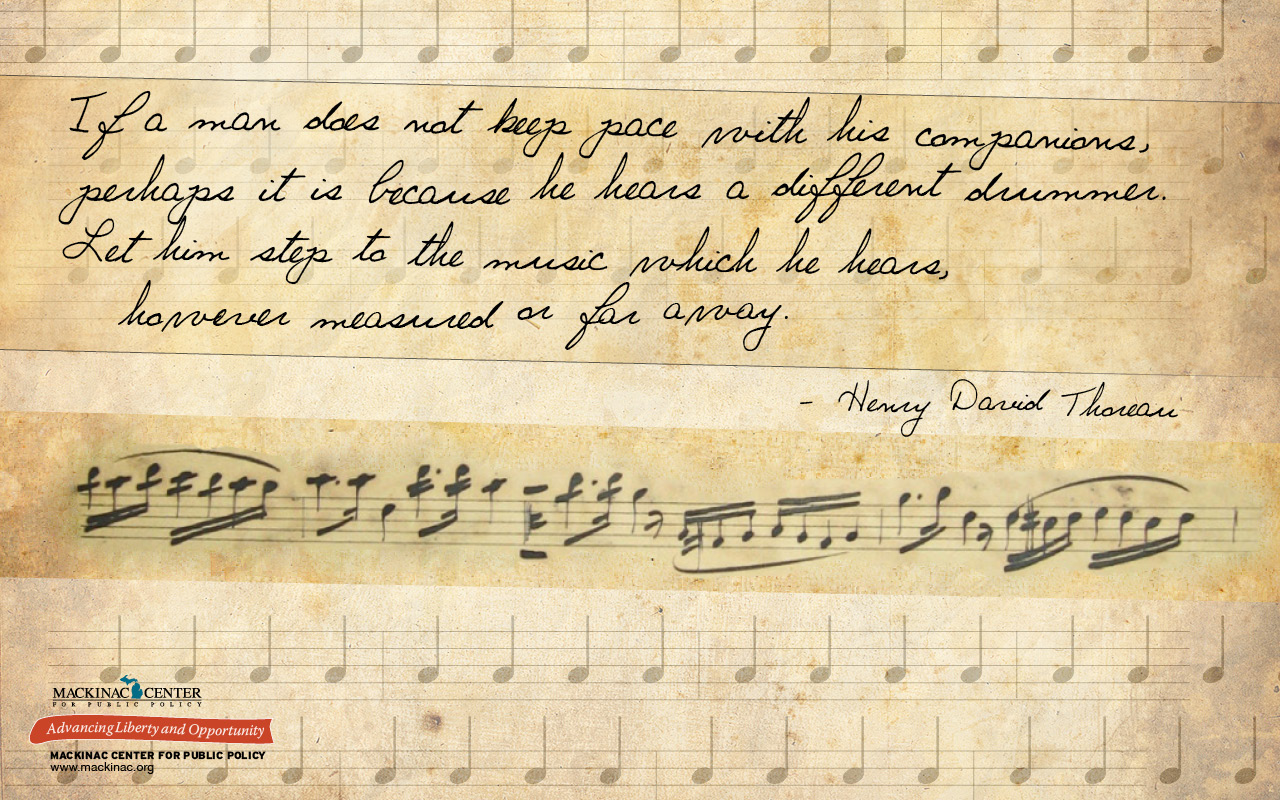 If a man does not keep pace with his companions,
perhaps it is because he hears a different drummer.
Let him step to the music which he hears,
however measured or far away.
- Henry David Thoreau
MACKINAC CENTER
FOR PUBLIC POLICY
Advancing Liberty and Opportunity
MACKINAC CENTER FOR PUBLIC POLICY
www.mackinac.org